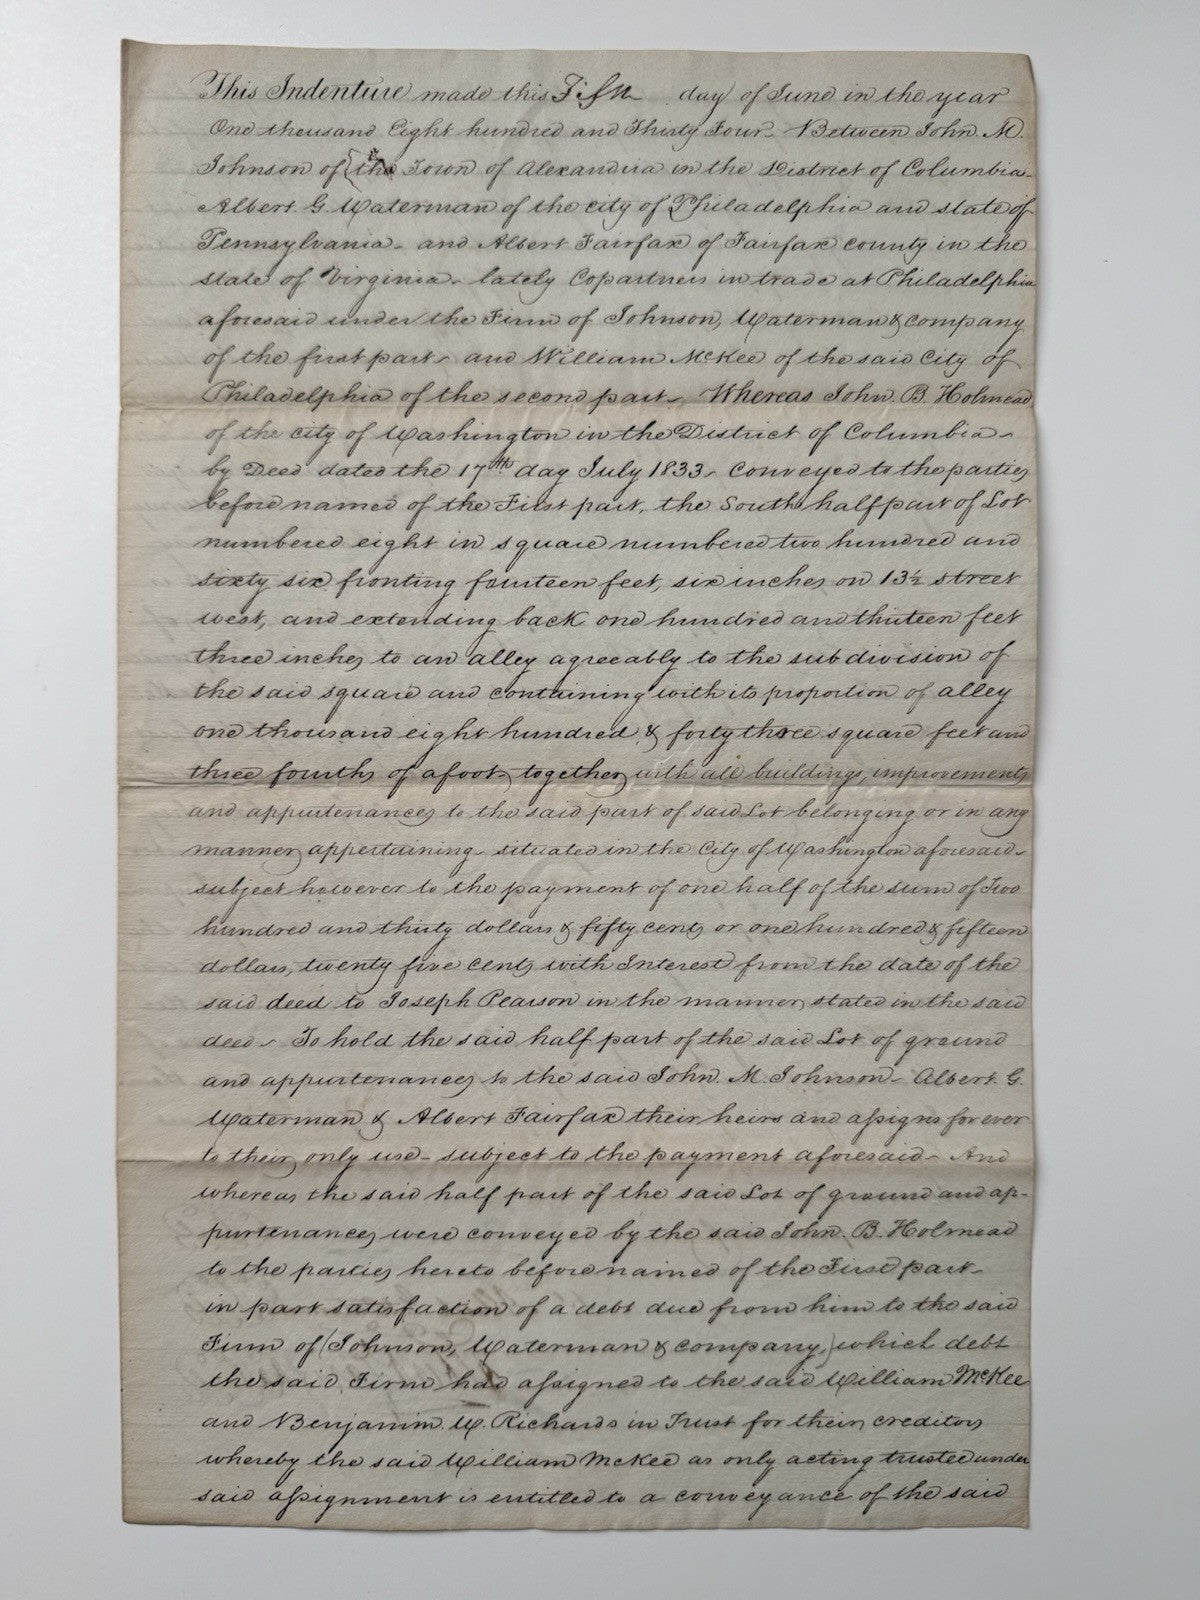 This Indenture made this Fifth day of June in the year
One thousand Eight hundred and Thirty Four - Between John. M.
Johnson of the Town of Alexandria in the District of Columbia -
Albert. G. Waterman of the city of Philadelphia and state of
Pennsylvania - and Albert Fairfax of Fairfax county in the
state of Virginia - lately Copartners in trade at Philadelphia
aforesaid under the Firm of Johnson, Waterman & company
of the first part - and William McKee of the said City of
Philadelphia of the second part - Whereas John. B. Holmead
of the city of Washington in the District of Columbia -
by Deed dated the 17th day July 1833 - conveyed to the parties
before named of the First part, the South half part of Lot
numbered eight in square numbered two hundred and
sixty six fronting fourteen feet, six inches on 13½ street
west, and extending back one hundred and thirteen feet
three inches to an alley agreeably to the subdivision of
the said square and containing with its proportion of alley
one thousand eight hundred & forty three square feet and
three fourths of a foot, together with all buildings, improvements
and appurtenances to the said part of said Lot belonging or in any
manner appertaining - situated in the City of Washington aforesaid -
subject however to the payment of one half of the sum of Two
hundred and thirty dollars & fifty cents or one hundred & fifteen
dollars, twenty five cents with Interest from the date of the
said deed to Joseph Pearson in the manner stated in the said
deed - To hold the said half part of the said Lot of ground
and appurtenances to the said John. M. Johnson - Albert. G.
Waterman & Albert Fairfax their heirs and assigns for ever
to their only use - subject to the payment aforesaid - And
whereas the said half part of the said Lot of ground and ap-
purtenances were conveyed by the said John. B. Holmead
to the parties hereto before named of the First part -
in part satisfaction of a debt due from him to the said
Firm of (Johnson, Waterman & company,) which debt
the said Firm had assigned to the said William McKee
and Benjamin. W. Richards in Trust for their creditors
whereby the said William McKee as only acting trustee under
said assignment is entitled to a conveyance of the said